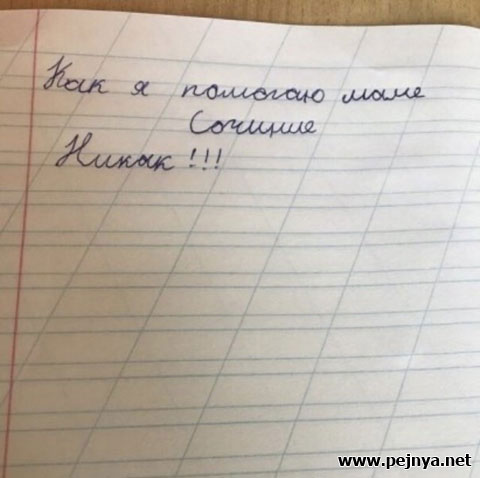 Как я помогаю маме
Сочиние
Никак!!!
www.pejnya.net